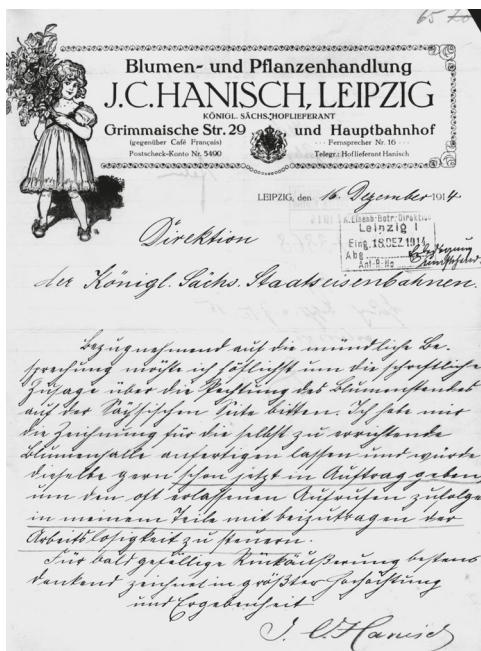 65 70
Blumen- und Pflanzenhandlung
J.C. HANISCH, LEIPZIG
KÖNIGL. SÄCHS. HOFLIEFERANT
Grimmaische Str. 29 und Hauptbahnhof
(gegenüber Café Français) Fernsprecher Nr. 16
Postscheck-Konto Nr. 5490 Telegr.: Hoflieferant Hanisch
LEIPZIG, den 16. Dezember 1914.
K. Eisenb-Betr. Direktion
Leipzig I
Eing. 18. DEZ. 1914
Abg.
Ant-R-No
Direktion
der Königl. Sächs. Staatseisenbahnen.
Bezugnehmend auf die mündliche Be-
sprechung möchte ich höflichst um die schriftliche
Zusage über die Pachtung des Blumenstandes
auf der Sächsischen Seite bitten. Ich habe mir
die Zeichnung für die selbst zu errichtende
Blumenhalle anfertigen lassen und würde
dieselbe gern schon jetzt in Auftrag geben,
um den oft erlassenen Aufrufen zufolge
in meinem Teile mit beizutragen der
Arbeitslosigkeit zu steuern.
Für bald gefällige Rückäußerung bestens
dankend zeichnet in größter Hochachtung
und Ergebenheit
J. C. Hanisch